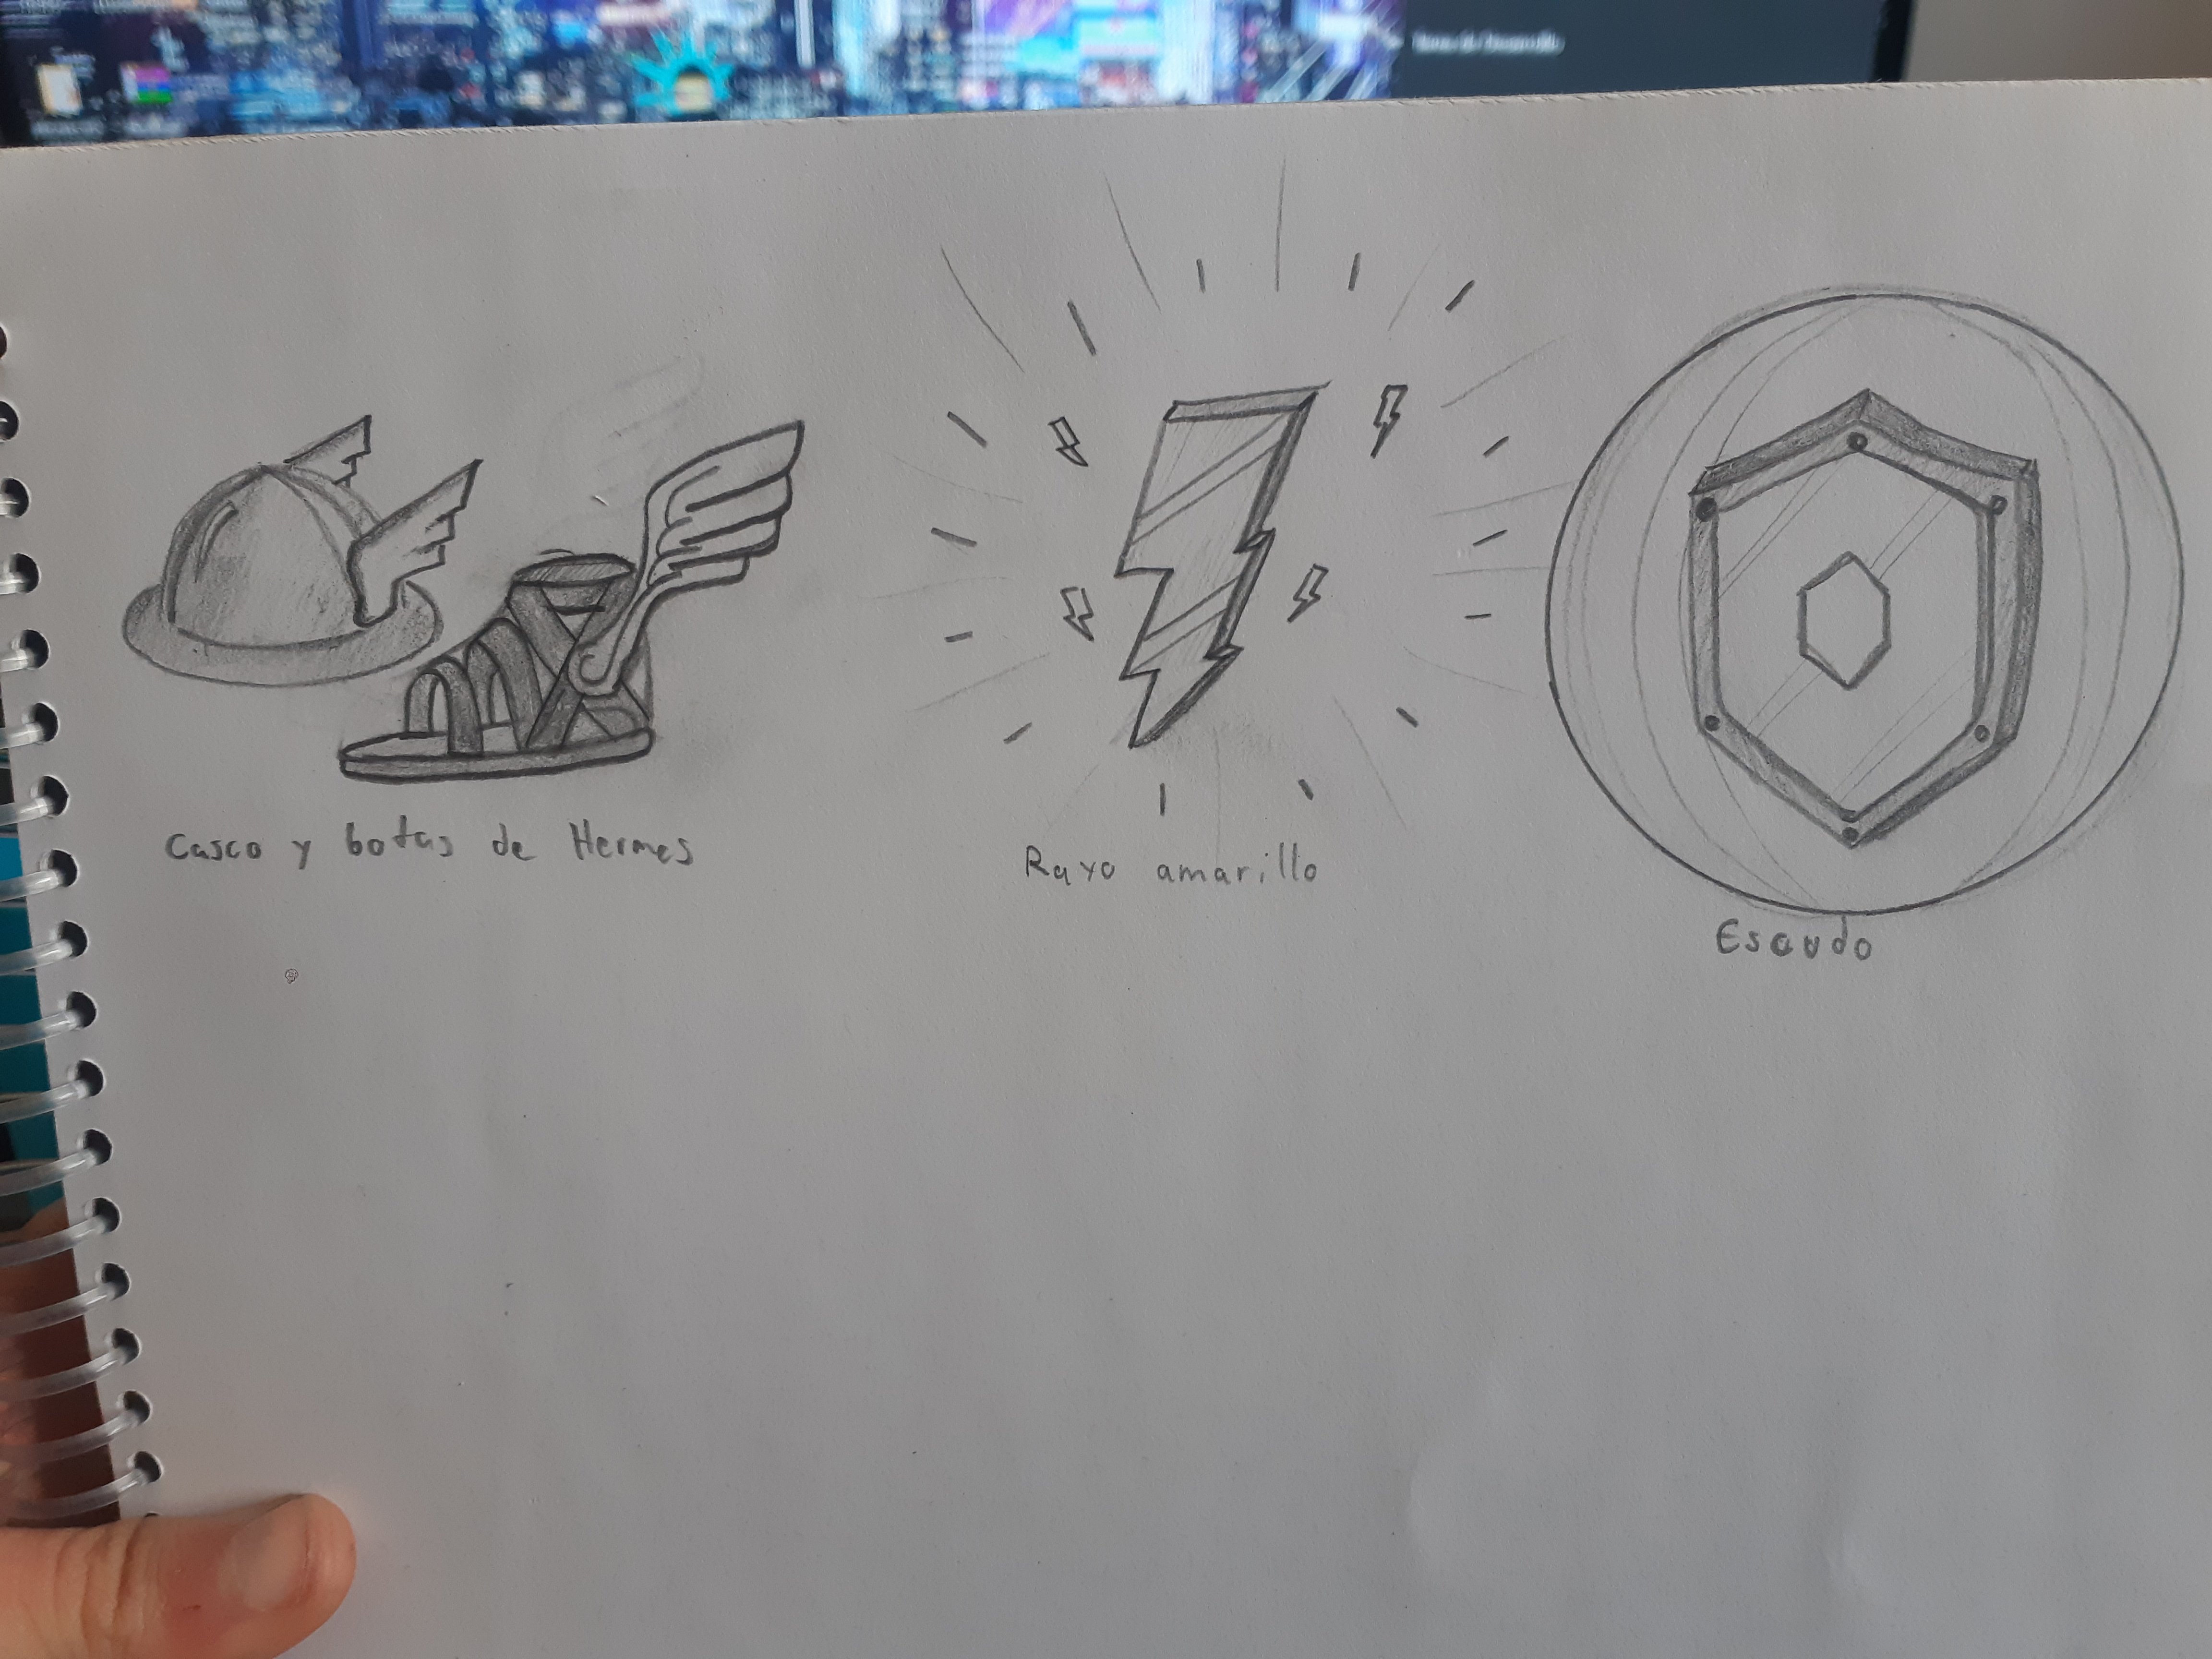 Casco y botas de Hermes
Rayo amarillo
Escudo